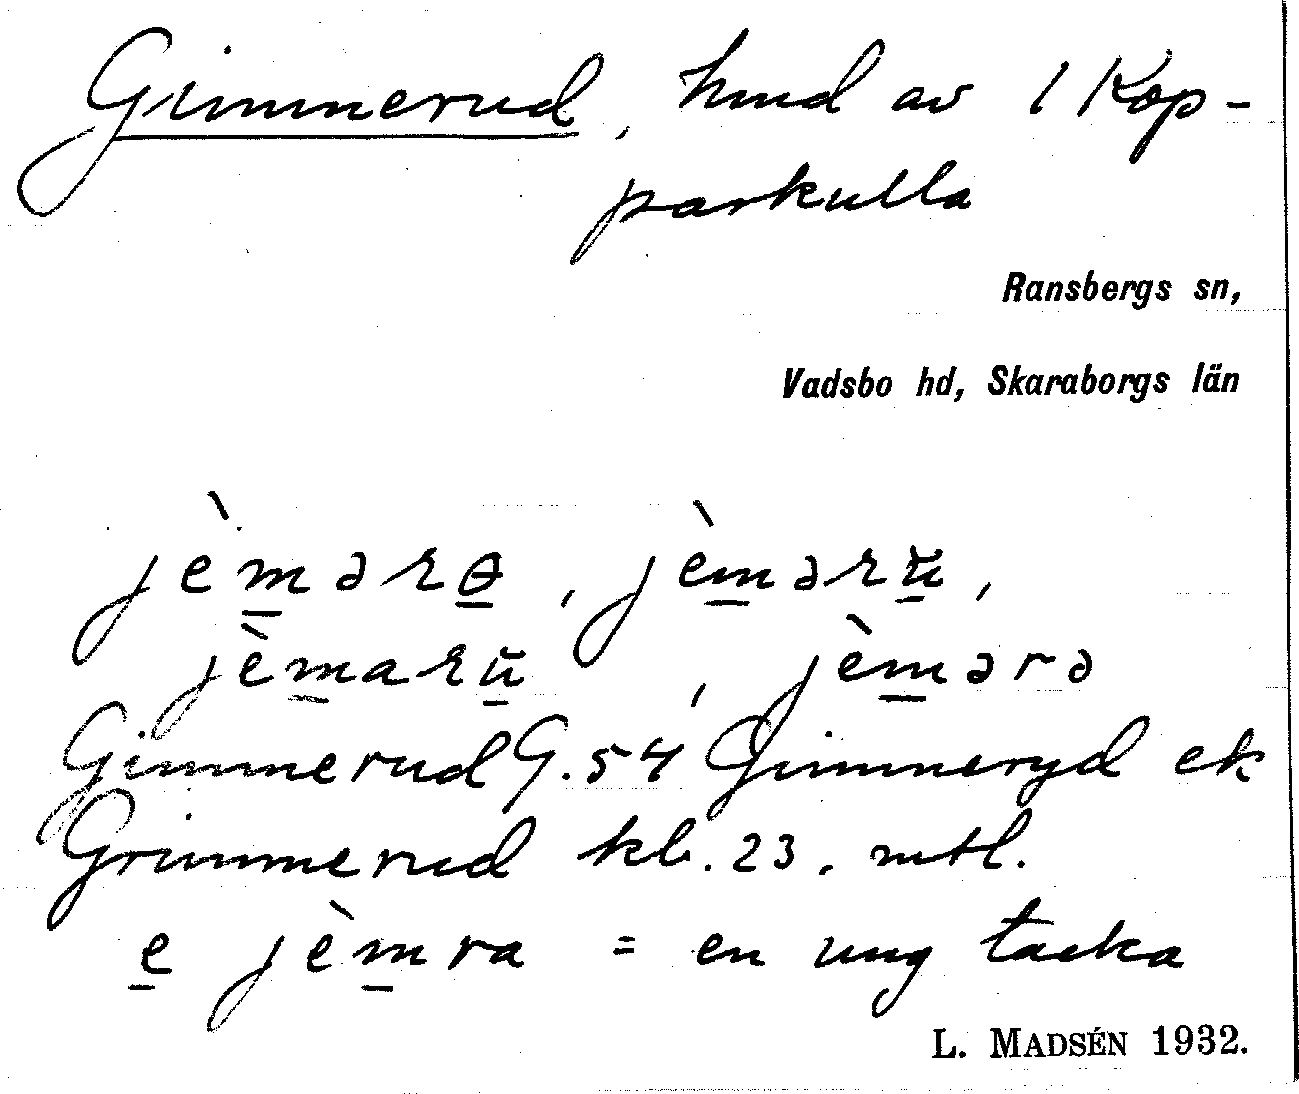 Gimmerud, hmd av 1 Kop-
parkulla
Ransbergs sn,
Vadsbo hd, Skaraborgs län
jèmərɵ, jèmərŭ,
jèmarŭ, jèmərə
Gimmerud G. 54 Gimmeryd ek
Grimmerud kb. 23, mtl.
e jèmra = en ung tacka
L. MADSÉN 1932.